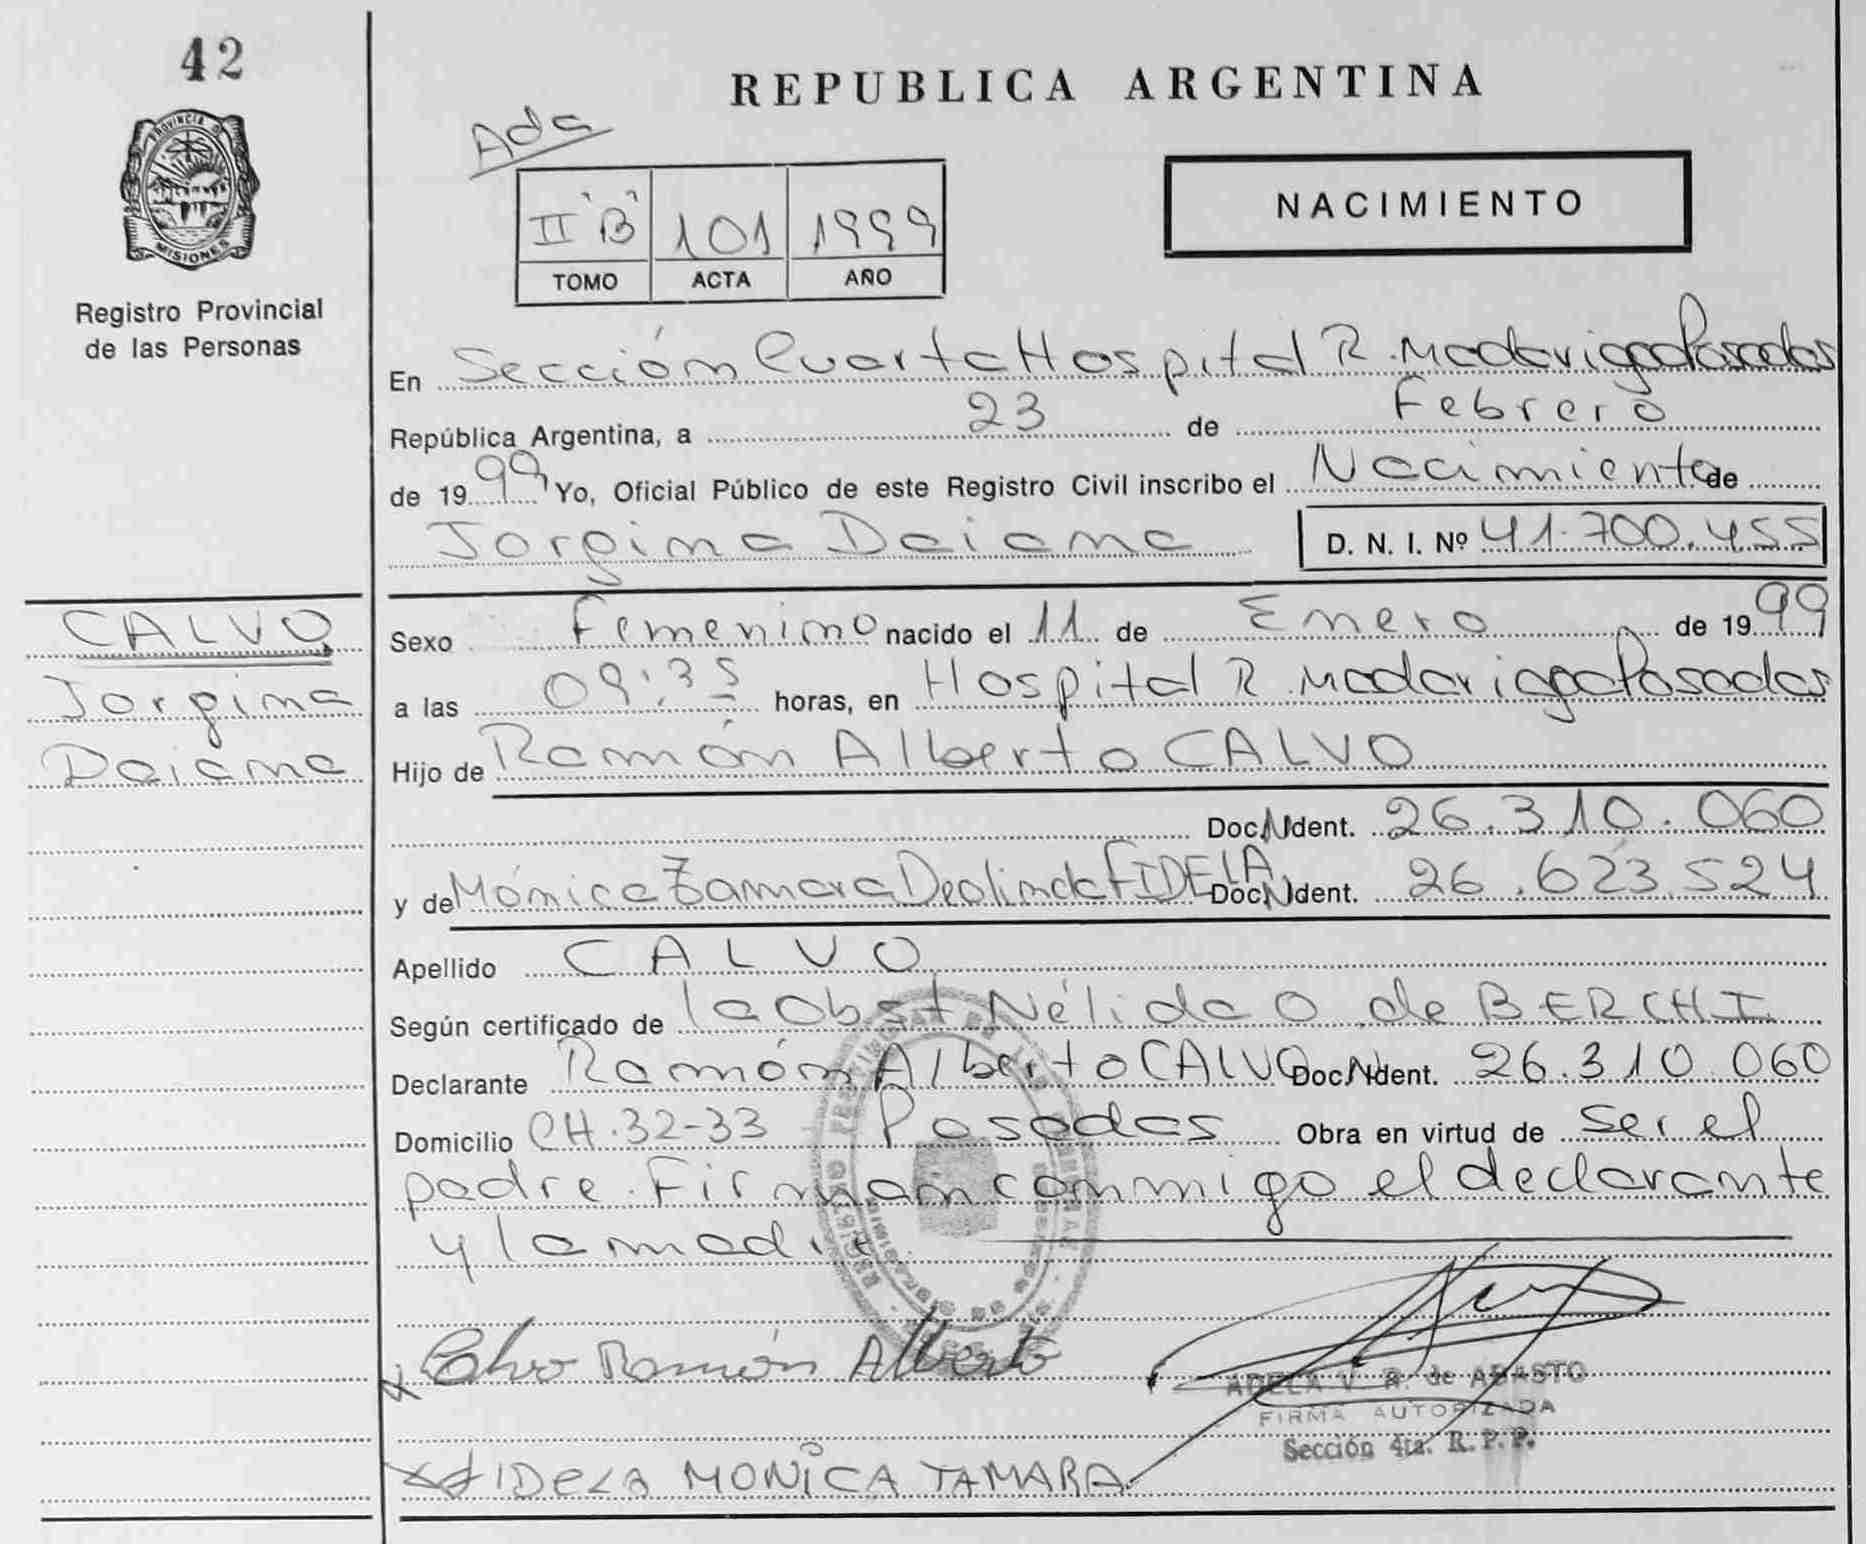 42
REPUBLICA ARGENTINA
Ada
PROVINCIA D
MISIONES
II "B" 101 1999
TOMO ACTA AÑO
NACIMIENTO
Registro Provincial
de las Personas
En Sección Cuarta Hospital R. Madariaga Posadas
República Argentina, a 23 de Febrero
de 1999 Yo, Oficial Público de este Registro Civil inscribo el Nacimiento de
Jorgina Daiana D. N. I. Nº 41.700.455
CALVO
Jorgina
Daiana
Sexo Femenino nacido el 11 de Enero de 1999
a las 09:35 horas, en Hospital R. Madariaga Posadas
Hijo de Ramón Alberto CALVO
Doc. N Ident. 26.310.060
y de Mónica Tamara Deolinda FIDELA Doc. N Ident. 26.623.524
Apellido CALVO
Según certificado de la Obst Nélida O. de BERCHI
Declarante Ramón Alberto CALVO Doc. N Ident. 26.310.060
Domicilio CH.32-33 Posadas Obra en virtud de ser el
padre. Firman conmigo el declarante
y la madre
Calvo Ramón Alberto
ADELA V. R. de ABASTO
FIRMA AUTORIZADA
Sección 4ta. R. P. P.
FIDELA MONICA TAMARA